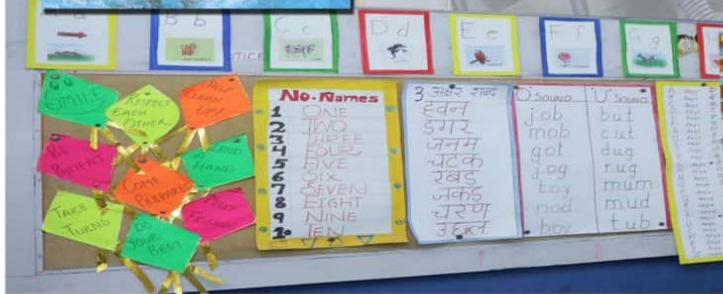 B b
C c
D d
E e
F f
G g
SMILE
RESPECT
EACH
OTHER
HELP
CLEAN
UP!
BE
PATIENT
COME
PREPARED
LEND
A
HAND
TAKE
TURNS
DO
YOUR
BEST
No-Names
1 ONE
2 TWO
3 THREE
4 FOUR
5 FIVE
6 SIX
7 SEVEN
8 EIGHT
9 NINE
10 TEN
3 अक्षर शब्द
हवन
डगर
जनम
चटक
रबड़
जकड़
चरण
उछल
O SOUND
job
mob
got
jog
toy
nod
boy
U SOUND
but
cut
dug
rug
mum
mud
tub